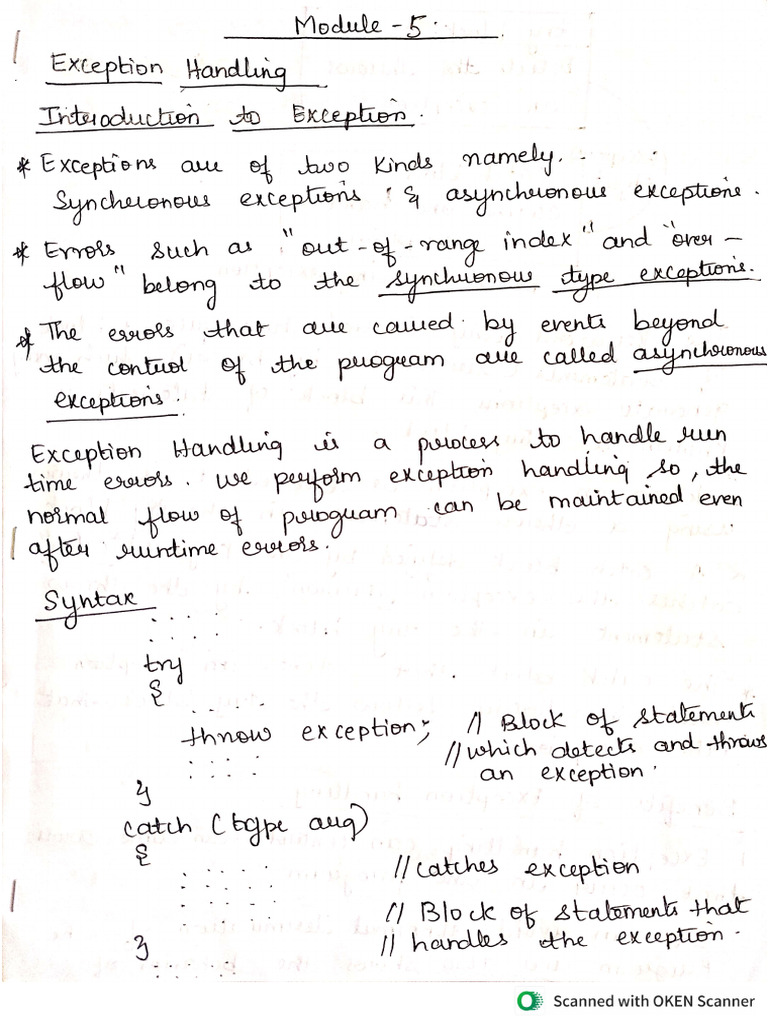 Module - 5.
Exception Handling
Introduction to Exception.
* Exceptions are of two kinds namely.
Synchronous exceptions & asynchronous exceptions.
* Errors such as "out-of-range index" and "over-
flow" belong to the synchronous type exceptions.
* The errors that are caused by events beyond
the control of the program are called asynchronous
exceptions.
Exception Handling is a process to handle run
time errors. we perform exception handling so, the
normal flow of program can be maintained even
after runtime errors.
Syntax
. . . .
. . . .
try
{
. . . .
throw exception; // Block of statements
. . . . // which detects and throws
. . . . an exception.
}
catch (type arg)
{
. . . . . // catches exception
. . . . .
. . . . . // Block of statements that
} // handles the exception.
. . . . .
Scanned with OKEN Scanner